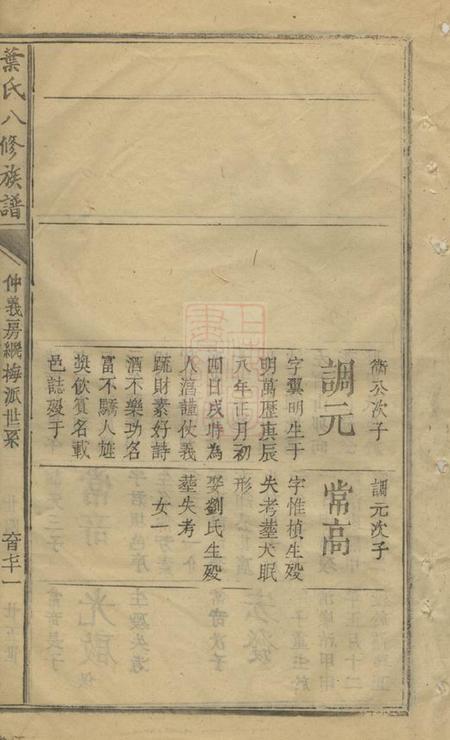 衛公次子
調元
字翼明生于
明萬歷庚辰
八年正月初
四日戌時為
人渾謹仗義
疏財素好詩
酒不樂功名
富不驕人旌
奬飲賓名載
邑誌殁于
調元次子
常高
字惟楨生殁
失考塟犬眠
形
娶劉氏生殁
塟失考
女一
葉氏八修族譜
仲義房綱梅派世系